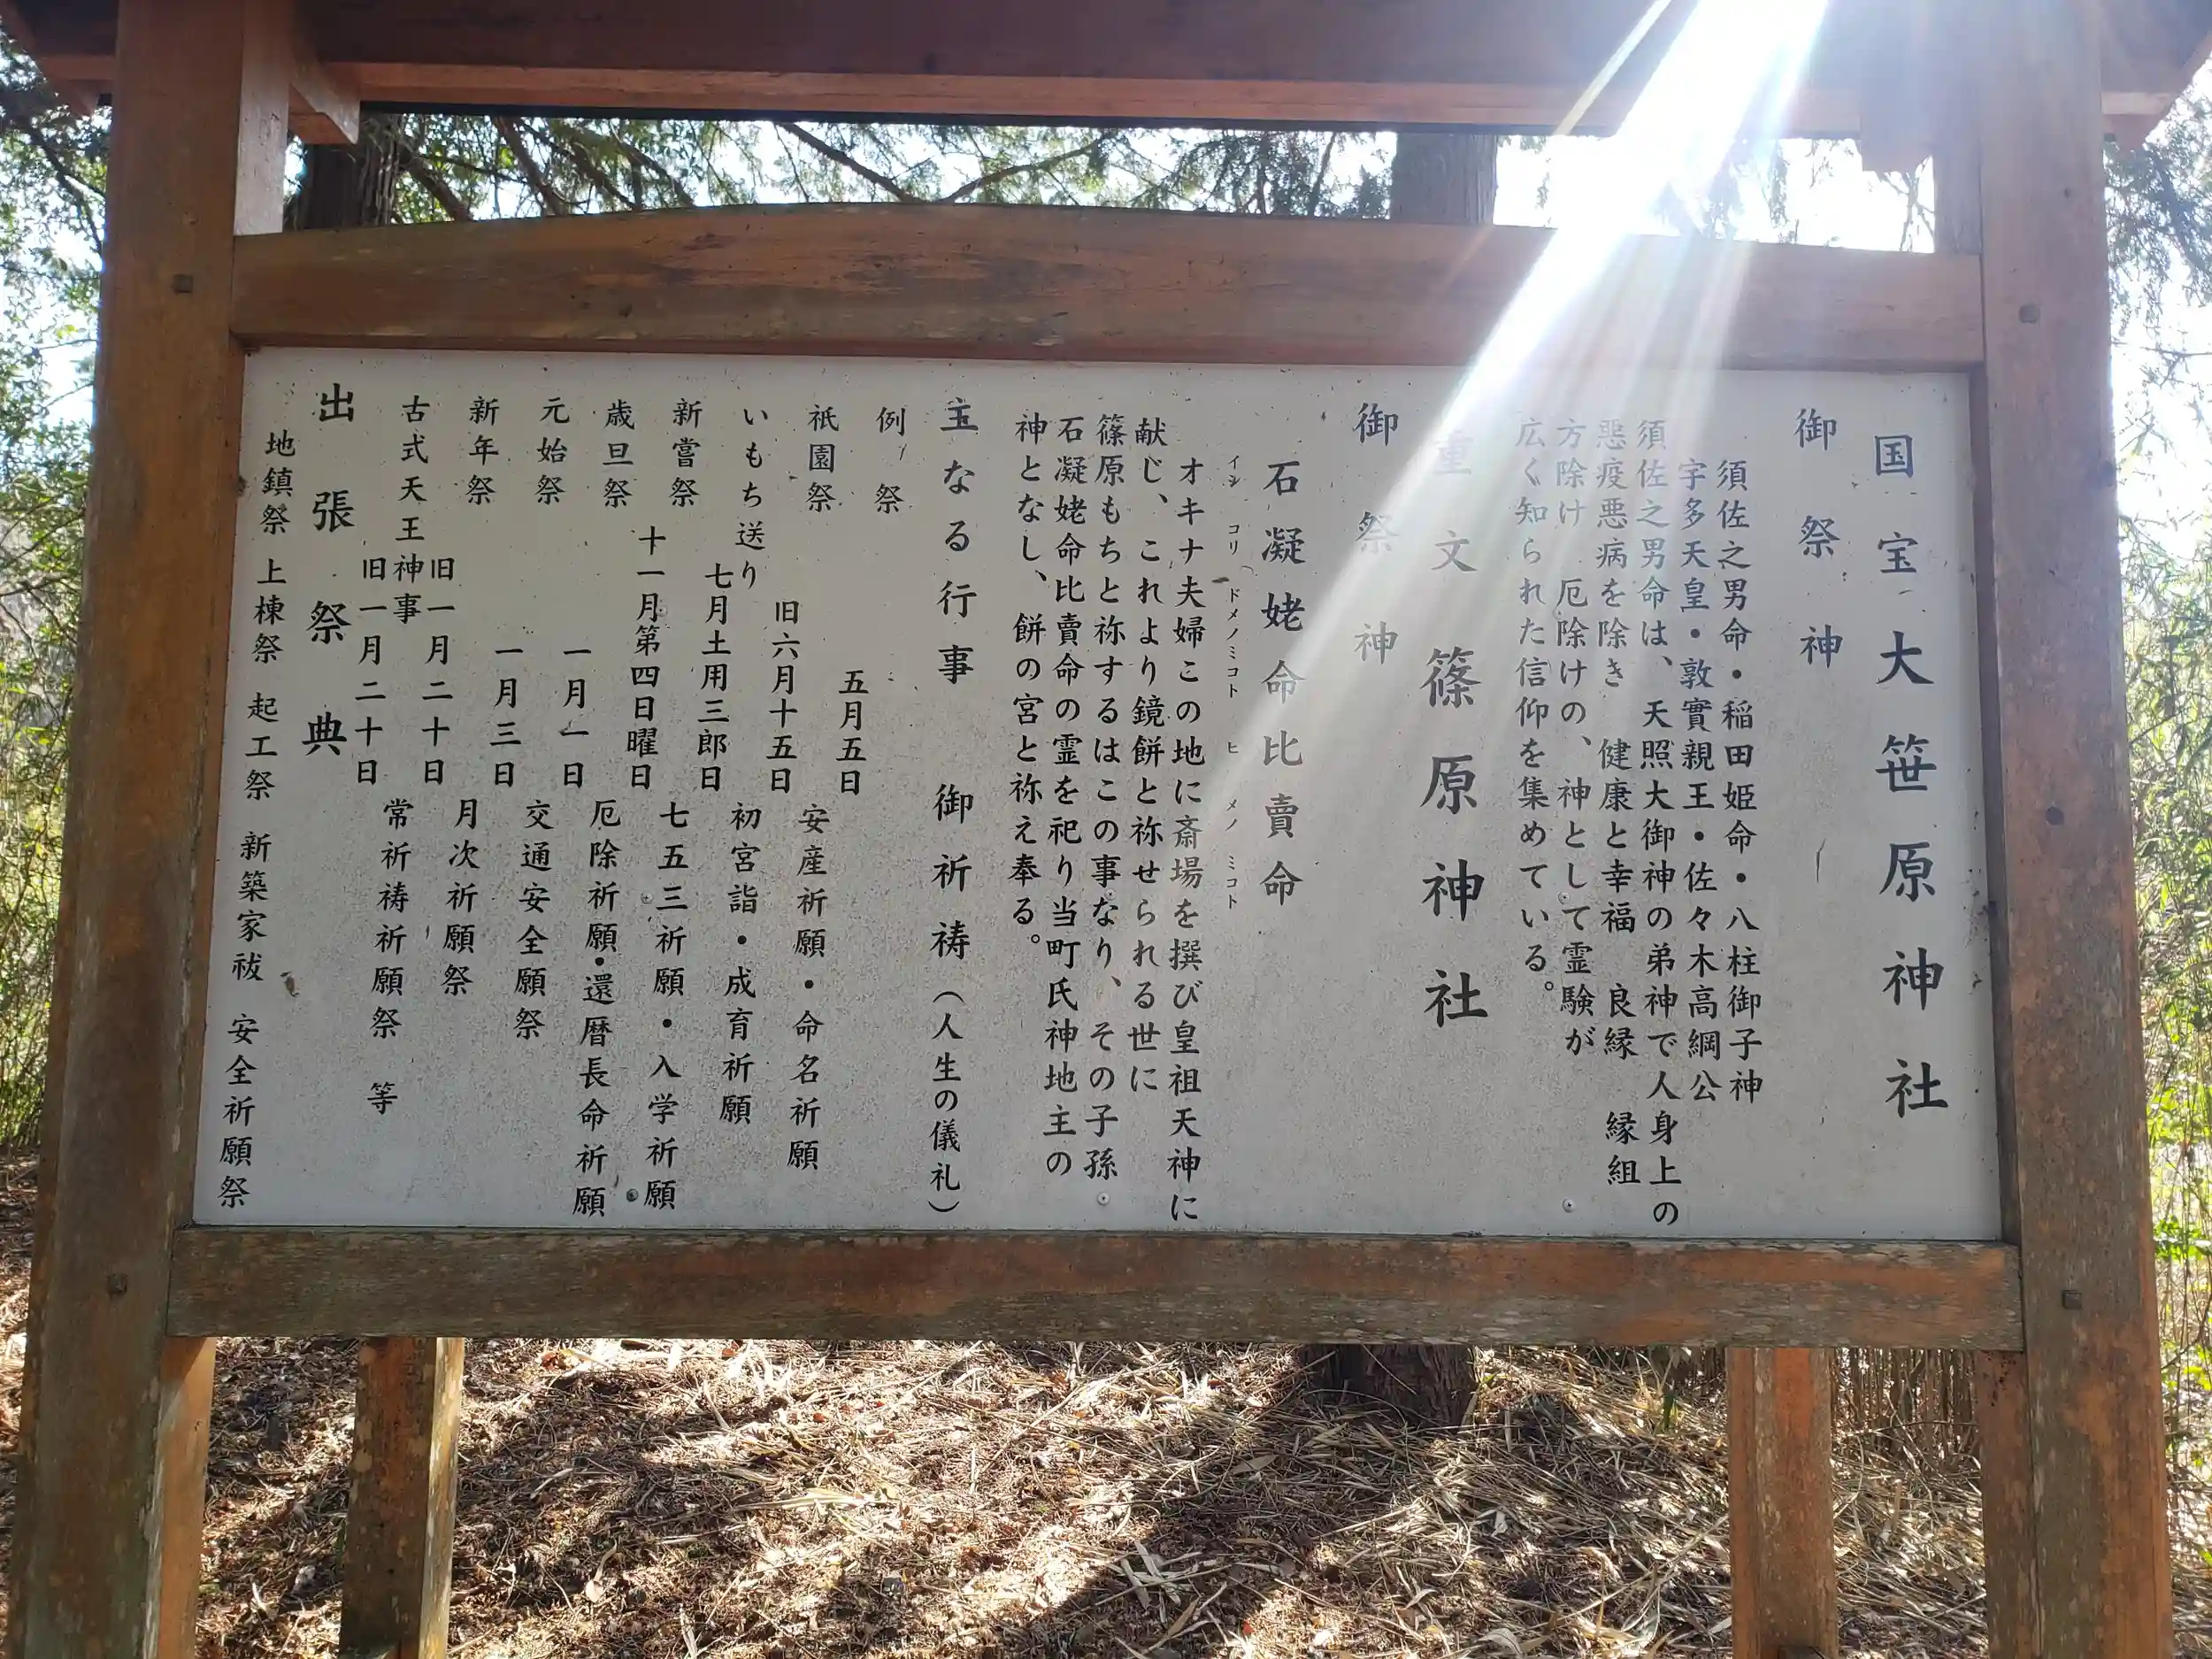 国宝大笹原神社
御祭神
須佐之男命・稲田姫命・八柱御子神
宇多天皇・敦實親王・佐々木高綱公
須佐之男命は、天照大御神の弟神で人身上の
悪疫悪病を除き 健康と幸福 良縁 縁組
方除け 厄除けの、神として霊験が
広く知られた信仰を集めている。
重文篠原神社
御祭神
石凝姥命比賣命
イシ コリ ドメノミコト ヒ メノ ミコト
オキナ夫婦この地に斎場を撰び皇祖天神に
献じ、これより鏡餅と祢せられる世に
篠原もちと祢するはこの事なり、その子孫
石凝姥命比賣命の霊を祀り当町氏神地主の
神となし、餅の宮と祢え奉る。
主なる行事 御祈祷(人生の儀礼)
例祭 五月五日
祇園祭 旧六月十五日
いもち送り 七月土用三郎日
新嘗祭 十一月第四日曜日
歳旦祭 一月一日
元始祭 一月三日
新年祭 旧一月二十日
古式天王神事 旧一月二十日
安産祈願・命名祈願
初宮詣・成育祈願
七五三祈願・入学祈願
厄除祈願・還暦長命祈願
交通安全願祭
月次祈願祭
常祈祷祈願祭 等
出張祭典
地鎮祭 上棟祭 起工祭 新築家祓 安全祈願祭